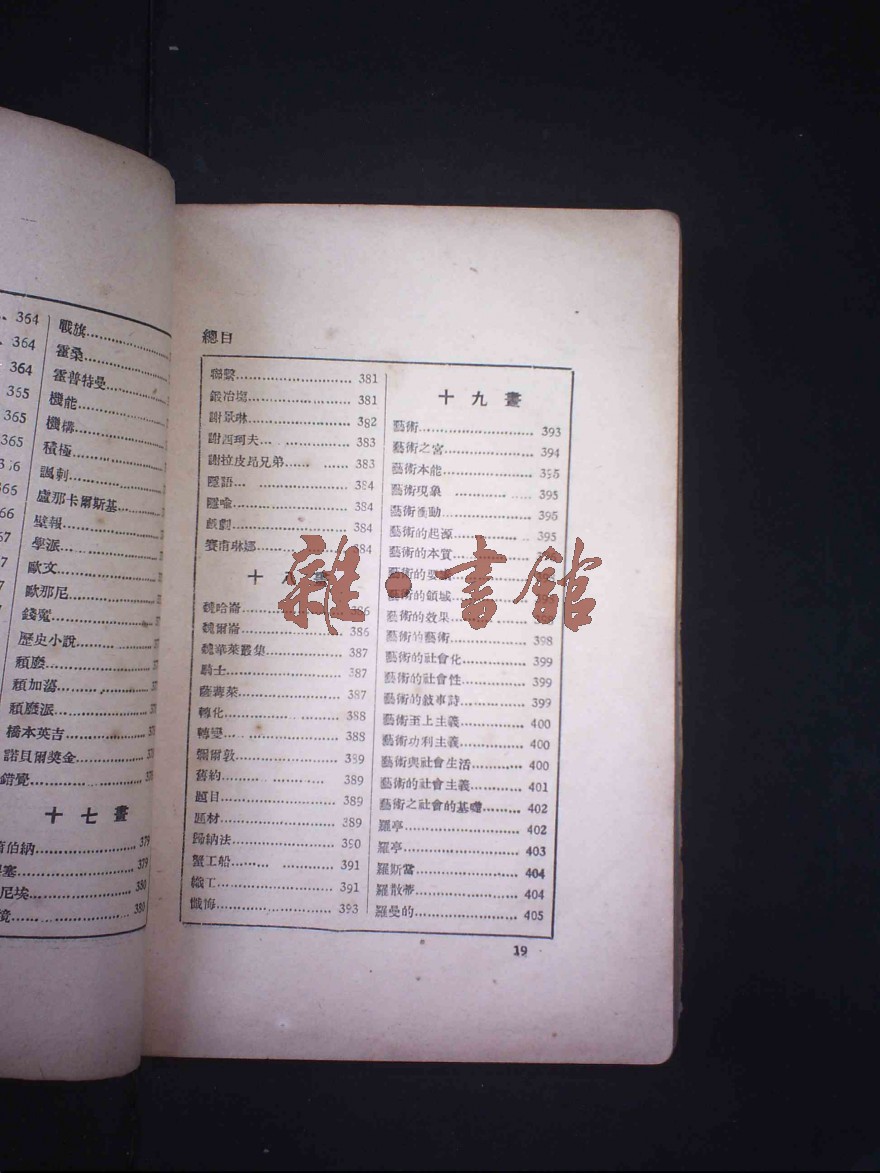 364
364
364
365
365
366
戰旗
霍桑
霍普特曼
機能
機構
積極
諷刺
盧那卡爾斯基
壁報
學派
歐文
歐那尼
錢寃
歷史小說
頹廢
頹加蕩
頹廢派
橋本英吉
諾貝爾獎金
錯覺
十七畫
379
379
尼埃 380
380
總目
聯繫 381
鍛冶場 381
謝景琳 382
謝西珂夫 383
謝拉皮昂兄弟 383
隱語 384
隱喻 384
戲劇 384
賽甫琳娜 384
十八畫
魏哈崙 386
魏爾崙 386
魏華萊叢集 387
騎士 387
薩蕁萊 387
轉化 388
轉變 388
彌爾敦 389
舊約 389
題目 389
題材 389
歸納法 390
蟹工船 391
織工 391
懺悔 393
十九畫
藝術 393
藝術之宮 394
藝術本能 395
藝術現象 395
藝術衝動 395
藝術的起源 395
藝術的本質
藝術的
藝術的領域
藝術的效果
藝術的藝術 398
藝術的社會化 399
藝術的社會性 399
藝術的敍事詩 399
藝術至上主義 400
藝術功利主義 400
藝術與社會生活 400
藝術的社會主義 401
藝術之社會的基礎 402
羅亭 402
羅亭 403
羅斯當 404
羅散蒂 404
羅曼的 405
19
雜·書館